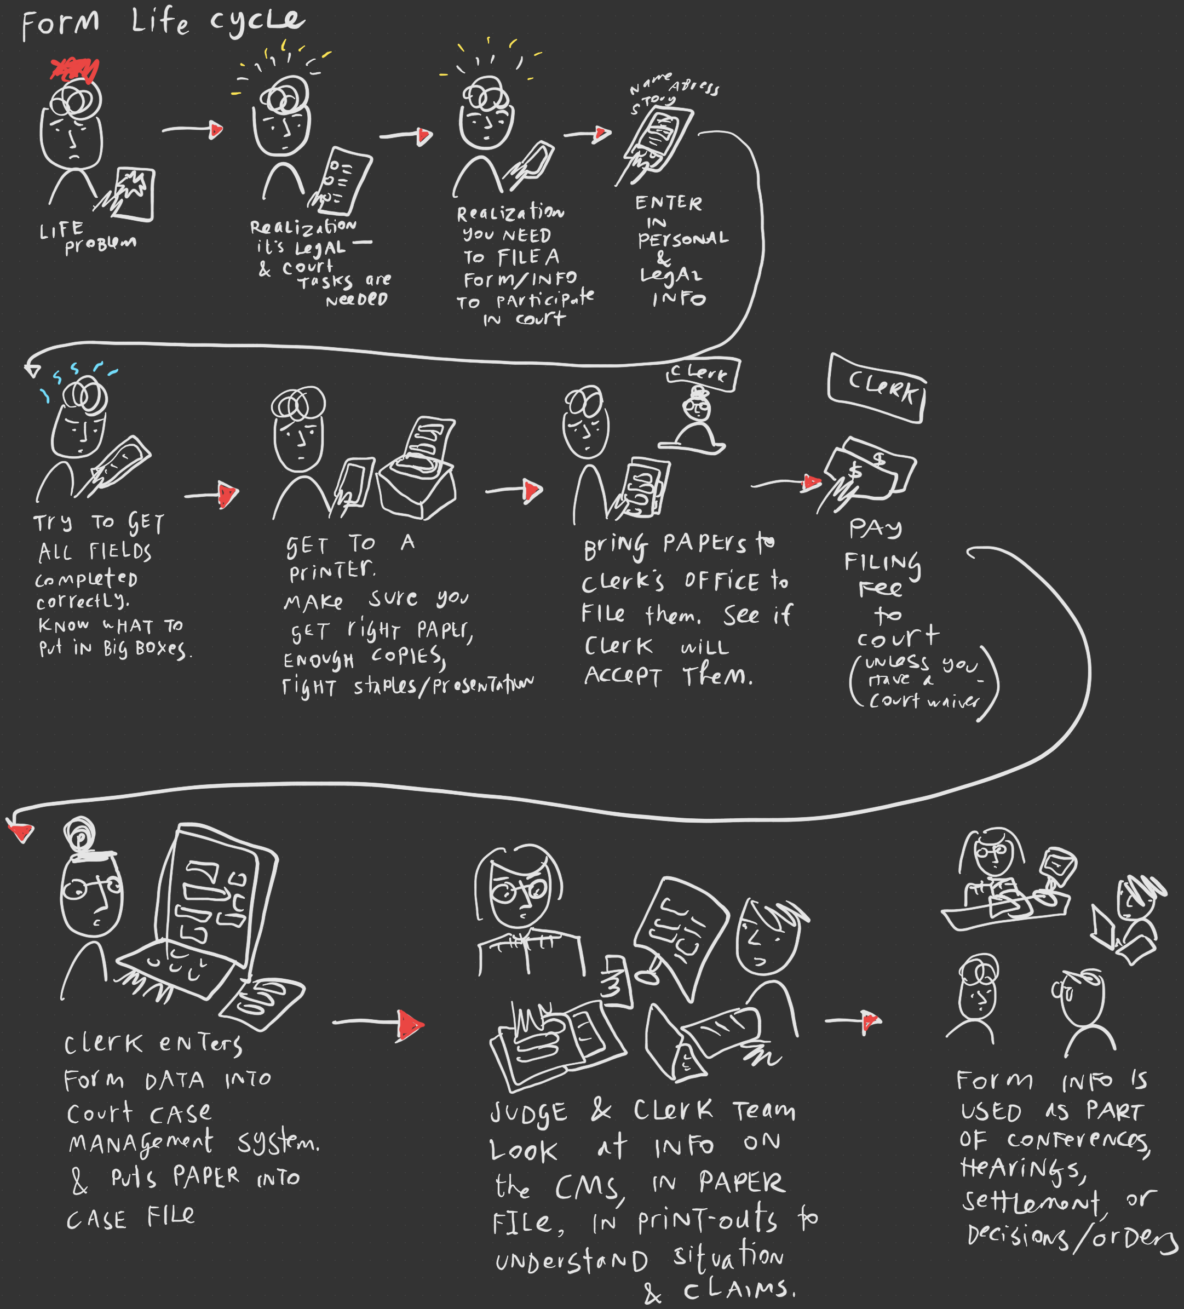 Form Life cycle
LIFE
problem
Realization
it's legal —
& court
tasks are
needed
Realization
you NEED
to FILE A
Form/INFO
to participate
in court
Name Adress
Story
ENTER
IN
PERSONAL
&
LegAL
INFO
Try to GET
ALL FIELDS
completed
correctly.
KNOW WHAT TO
put in Big Boxes.
GET TO A
PrinTER.
MAKE SURE you
GET right PAPER,
ENOUGH COPIES,
right staples/presentation
clerk
Bring PAPERS to
Clerk's OFFICE to
FILE them. See if
Clerk will
ACCEPT Them.
CLERK
PAY
FILING
FEE
to
court
(unless you
have a -
court waiver)
Clerk enters
Form DATA INTO
Court CASE
MANAgement system.
& puts PAPER INTO
CASE FILE
JUDGE & Clerk Team
LOOK at INFO ON
the CMS, IN PAPER
FILE, IN print-outs to
understand situation
& CLAIMS.
Form INFO IS
USED as PART
OF conferences,
Hearings,
settlement, or
Decisions/orders